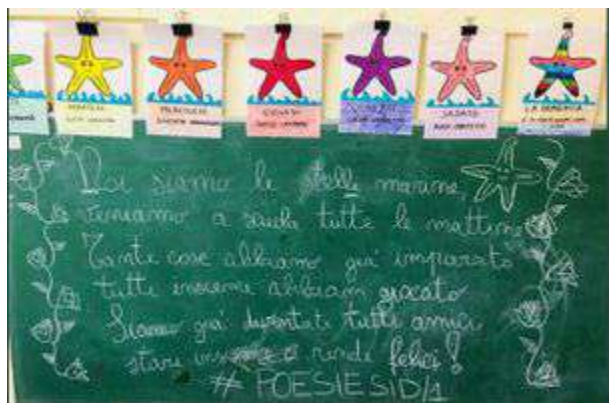 MARTEDÌ
MERCOLEDÌ
GIOVEDÌ
VENERDÌ
SABATO
LA DOMENICA
Noi siamo le stelle marine,
veniamo a scuola tutte le mattine
Tante cose abbiamo già imparato
tutte insieme abbiam giocato
Siamo già diventate tutti amici
stare insieme ci rende felici!
#POESIESID/1